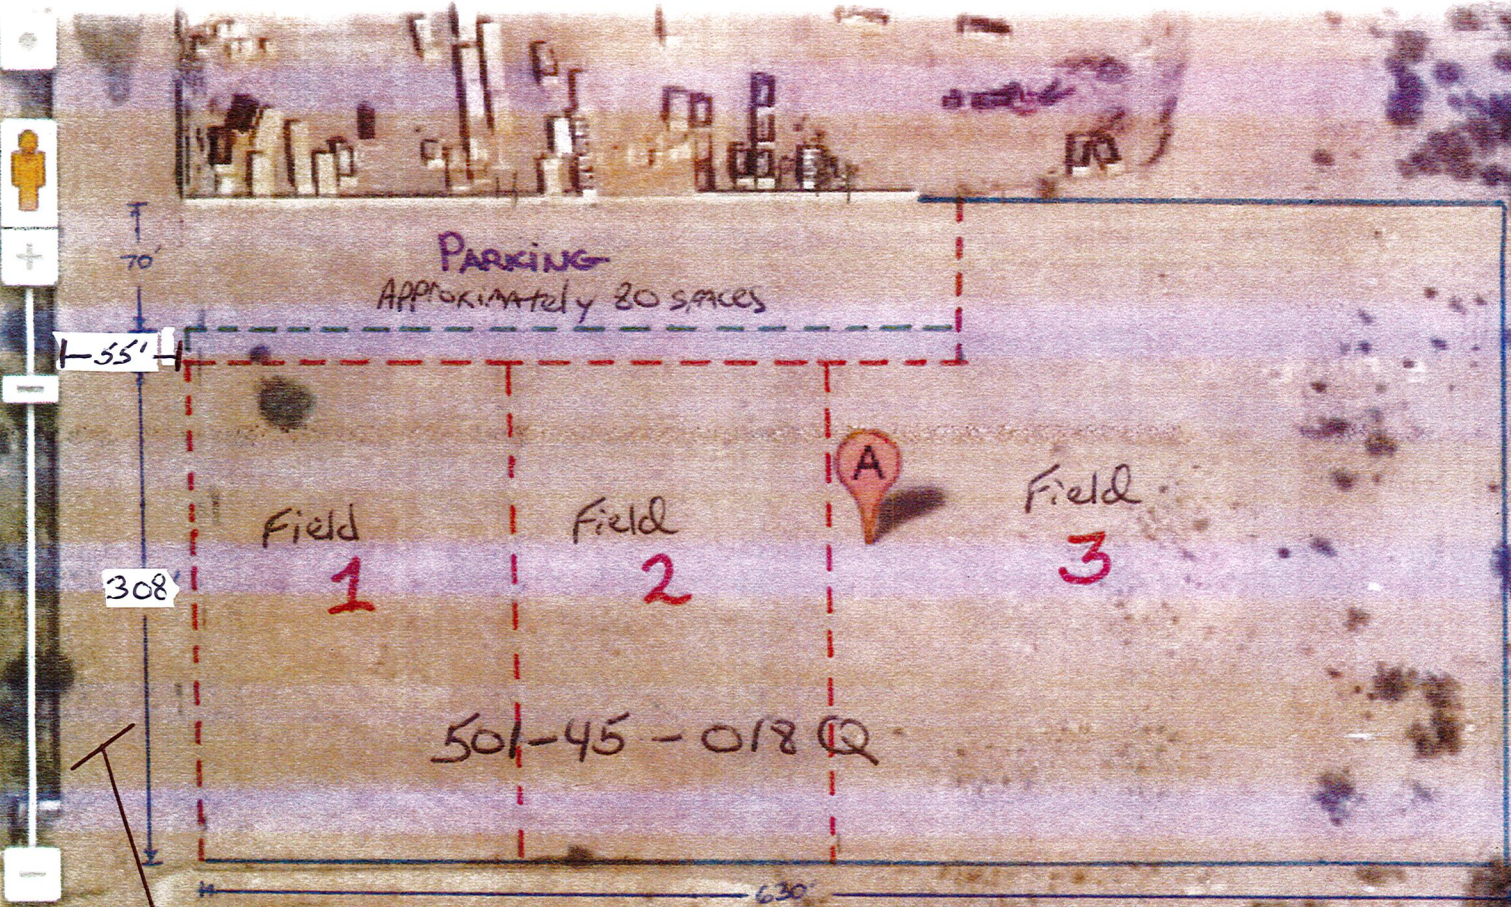 70'
PARKING
APPROXIMAtely 80 SPACES
55'
A
Field
1
Field
2
Field
3
308'
501-45-018Q
630'